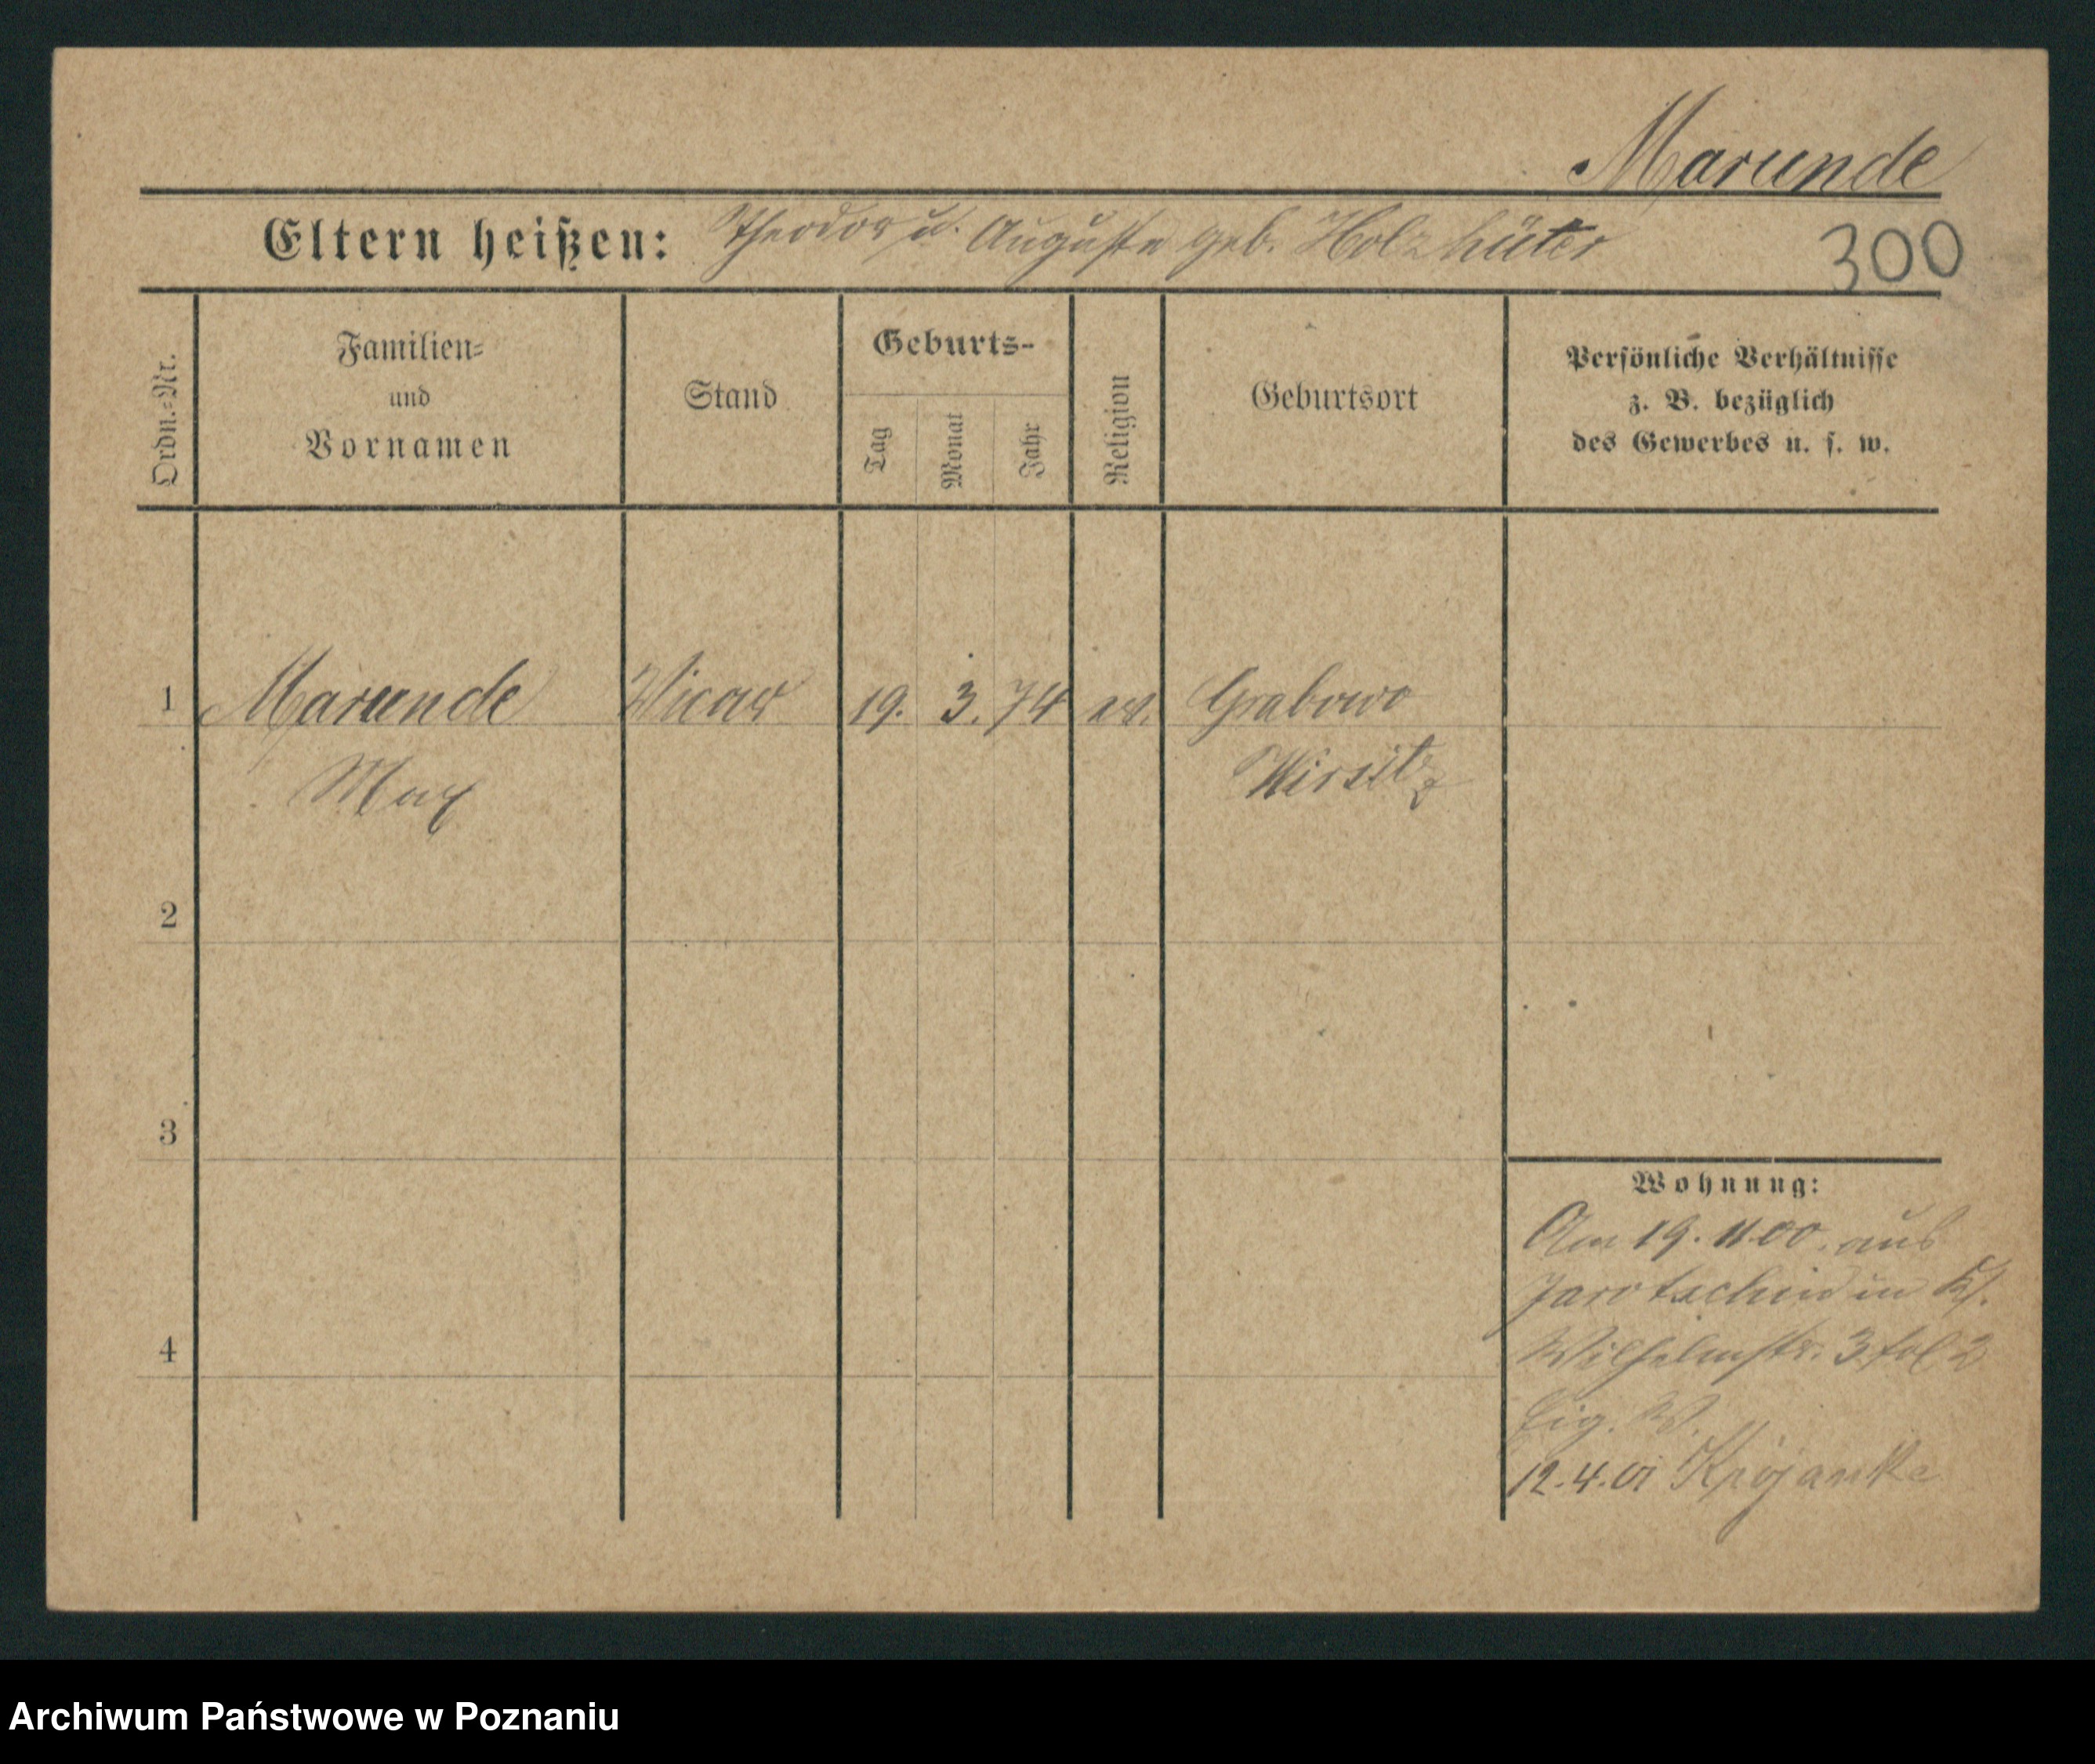 Marunde
Eltern heißen: Theodor u. Auguste geb. Holzhüter
300
Ordn.=Nr.
Familien=
und
Vornamen
Stand
Geburts-
Tag
Monat
Jahr
Religion
Geburtsort
Persönliche Verhältnisse
z. B. bezüglich
des Gewerbes u. s. w.
1 Marunde Vicar 19. 3. 74 ev. Grabowo
Max Wirsitz
2
3
4
Wohnung:
Am 19. 11.00. aus
Jarotschin in
Wilhelmstr. 3
Eig. W.
12.4.01 Krojanke
Archiwum Państwowe w Poznaniu